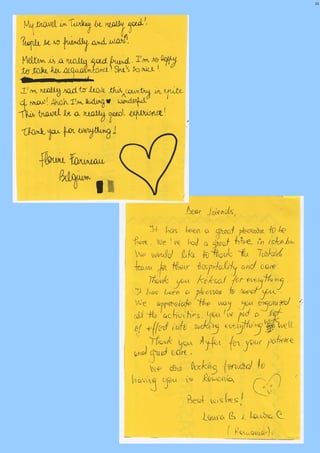 My travel in Turkey be really good!
People be so friendly and warm.
Meltem is a really good friend. I'm so happy
to take her acquaintance! She's so nice!
I'm really sad to leave this country in spite
of snow! Ahah I'm kiding ♥ wonderful
This travel be a really good experience!
Thank you for everything!
Florine Farineau
Belgium
Dear friends,
It has been a great pleasure to be
here. We've had a great time in Istanbul.
We would like to thank the Turkish
team for their hospitality and care.
Thank you Köksal for everything
It has been a pleasure to meet you
We appreciate the way you organized
all the activities. You've put a lot
of effort into making everything well
Thank you Ayfer for your patience
and great care.
We are looking forward to
having you in Romania.
Best wishes!
Laura B & Laura C.
(Romania)